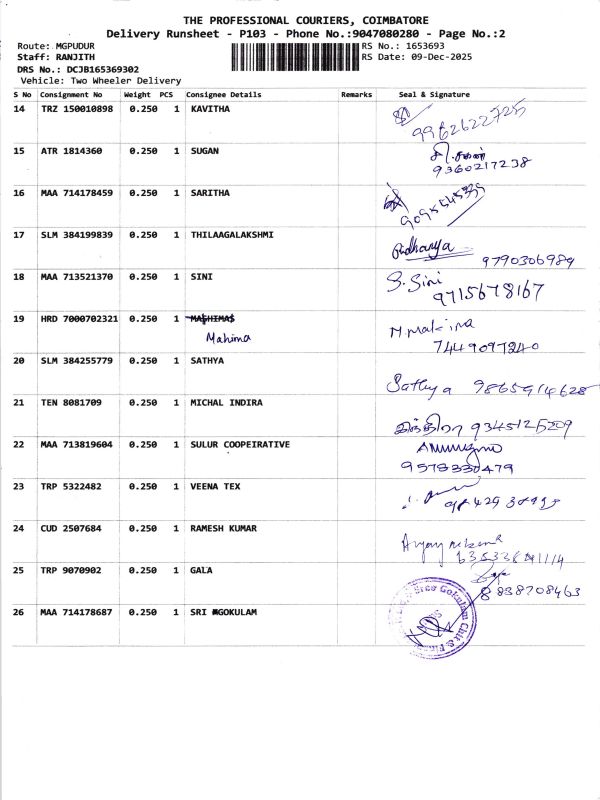 THE PROFESSIONAL COURIERS, COIMBATORE
Delivery Runsheet - P103 - Phone No.:9047080280 - Page No.:2
Route: MGPUDUR RS No.: 1653693
Staff: RANJITH RS Date: 09-Dec-2025
DRS No.: DCJB165369302
Vehicle: Two Wheeler Delivery
S No Consignment No Weight PCS Consignee Details Remarks Seal & Signature
14 TRZ 150010898 0.250 1 KAVITHA
9962622725
15 ATR 1814360 0.250 1 SUGAN
9360217238
16 MAA 714178459 0.250 1 SARITHA
17 SLM 384199839 0.250 1 THILAAGALAKSHMI
9790306989
18 MAA 713521370 0.250 1 SINI S. Sini
9715678167
19 HRD 7000702321 0.250 1
Mahima
7449097240
20 SLM 384255779 0.250 1 SATHYA
Sathya 9865914628
21 TEN 8081709 0.250 1 MICHAL INDIRA
இந்திரா 9345125209
22 MAA 713819604 0.250 1 SULUR COOPEIRATIVE
9578330479
23 TRP 5322482 0.250 1 VEENA TEX
24 CUD 2507684 0.250 1 RAMESH KUMAR
25 TRP 9070902 0.250 1 GALA
8838708463
26 MAA 714178687 0.250 1 SRI GOKULAM
Sree Gokulam Chit & Finance